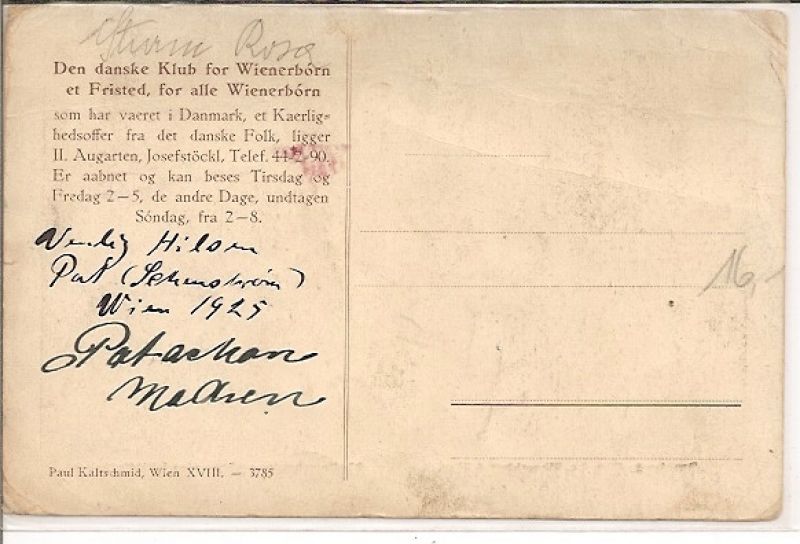 Sturm Rosa
Den danske Klub for Wienerbórn
et Fristed, for alle Wienerbórn
som har vaeret i Danmark, et Kaerlig=
hedsoffer fra det danske Folk, ligger
II. Augarten, Josefstöckl, Telef. 44-2-90.
Er aabnet og kan beses Tirsdag og
Fredag 2—5, de andre Dage, undtagen
Sóndag, fra 2—8.
Venlig Hilsen
Pat (Schenstrøm)
Wien 1925
Patachon
Madsen
16,-
Paul Kaltschmid, Wien XVIII. — 3785